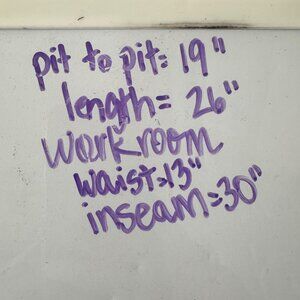 pit to pit: 19"
length= 26"
workroom
waist=13"
inseam=30"